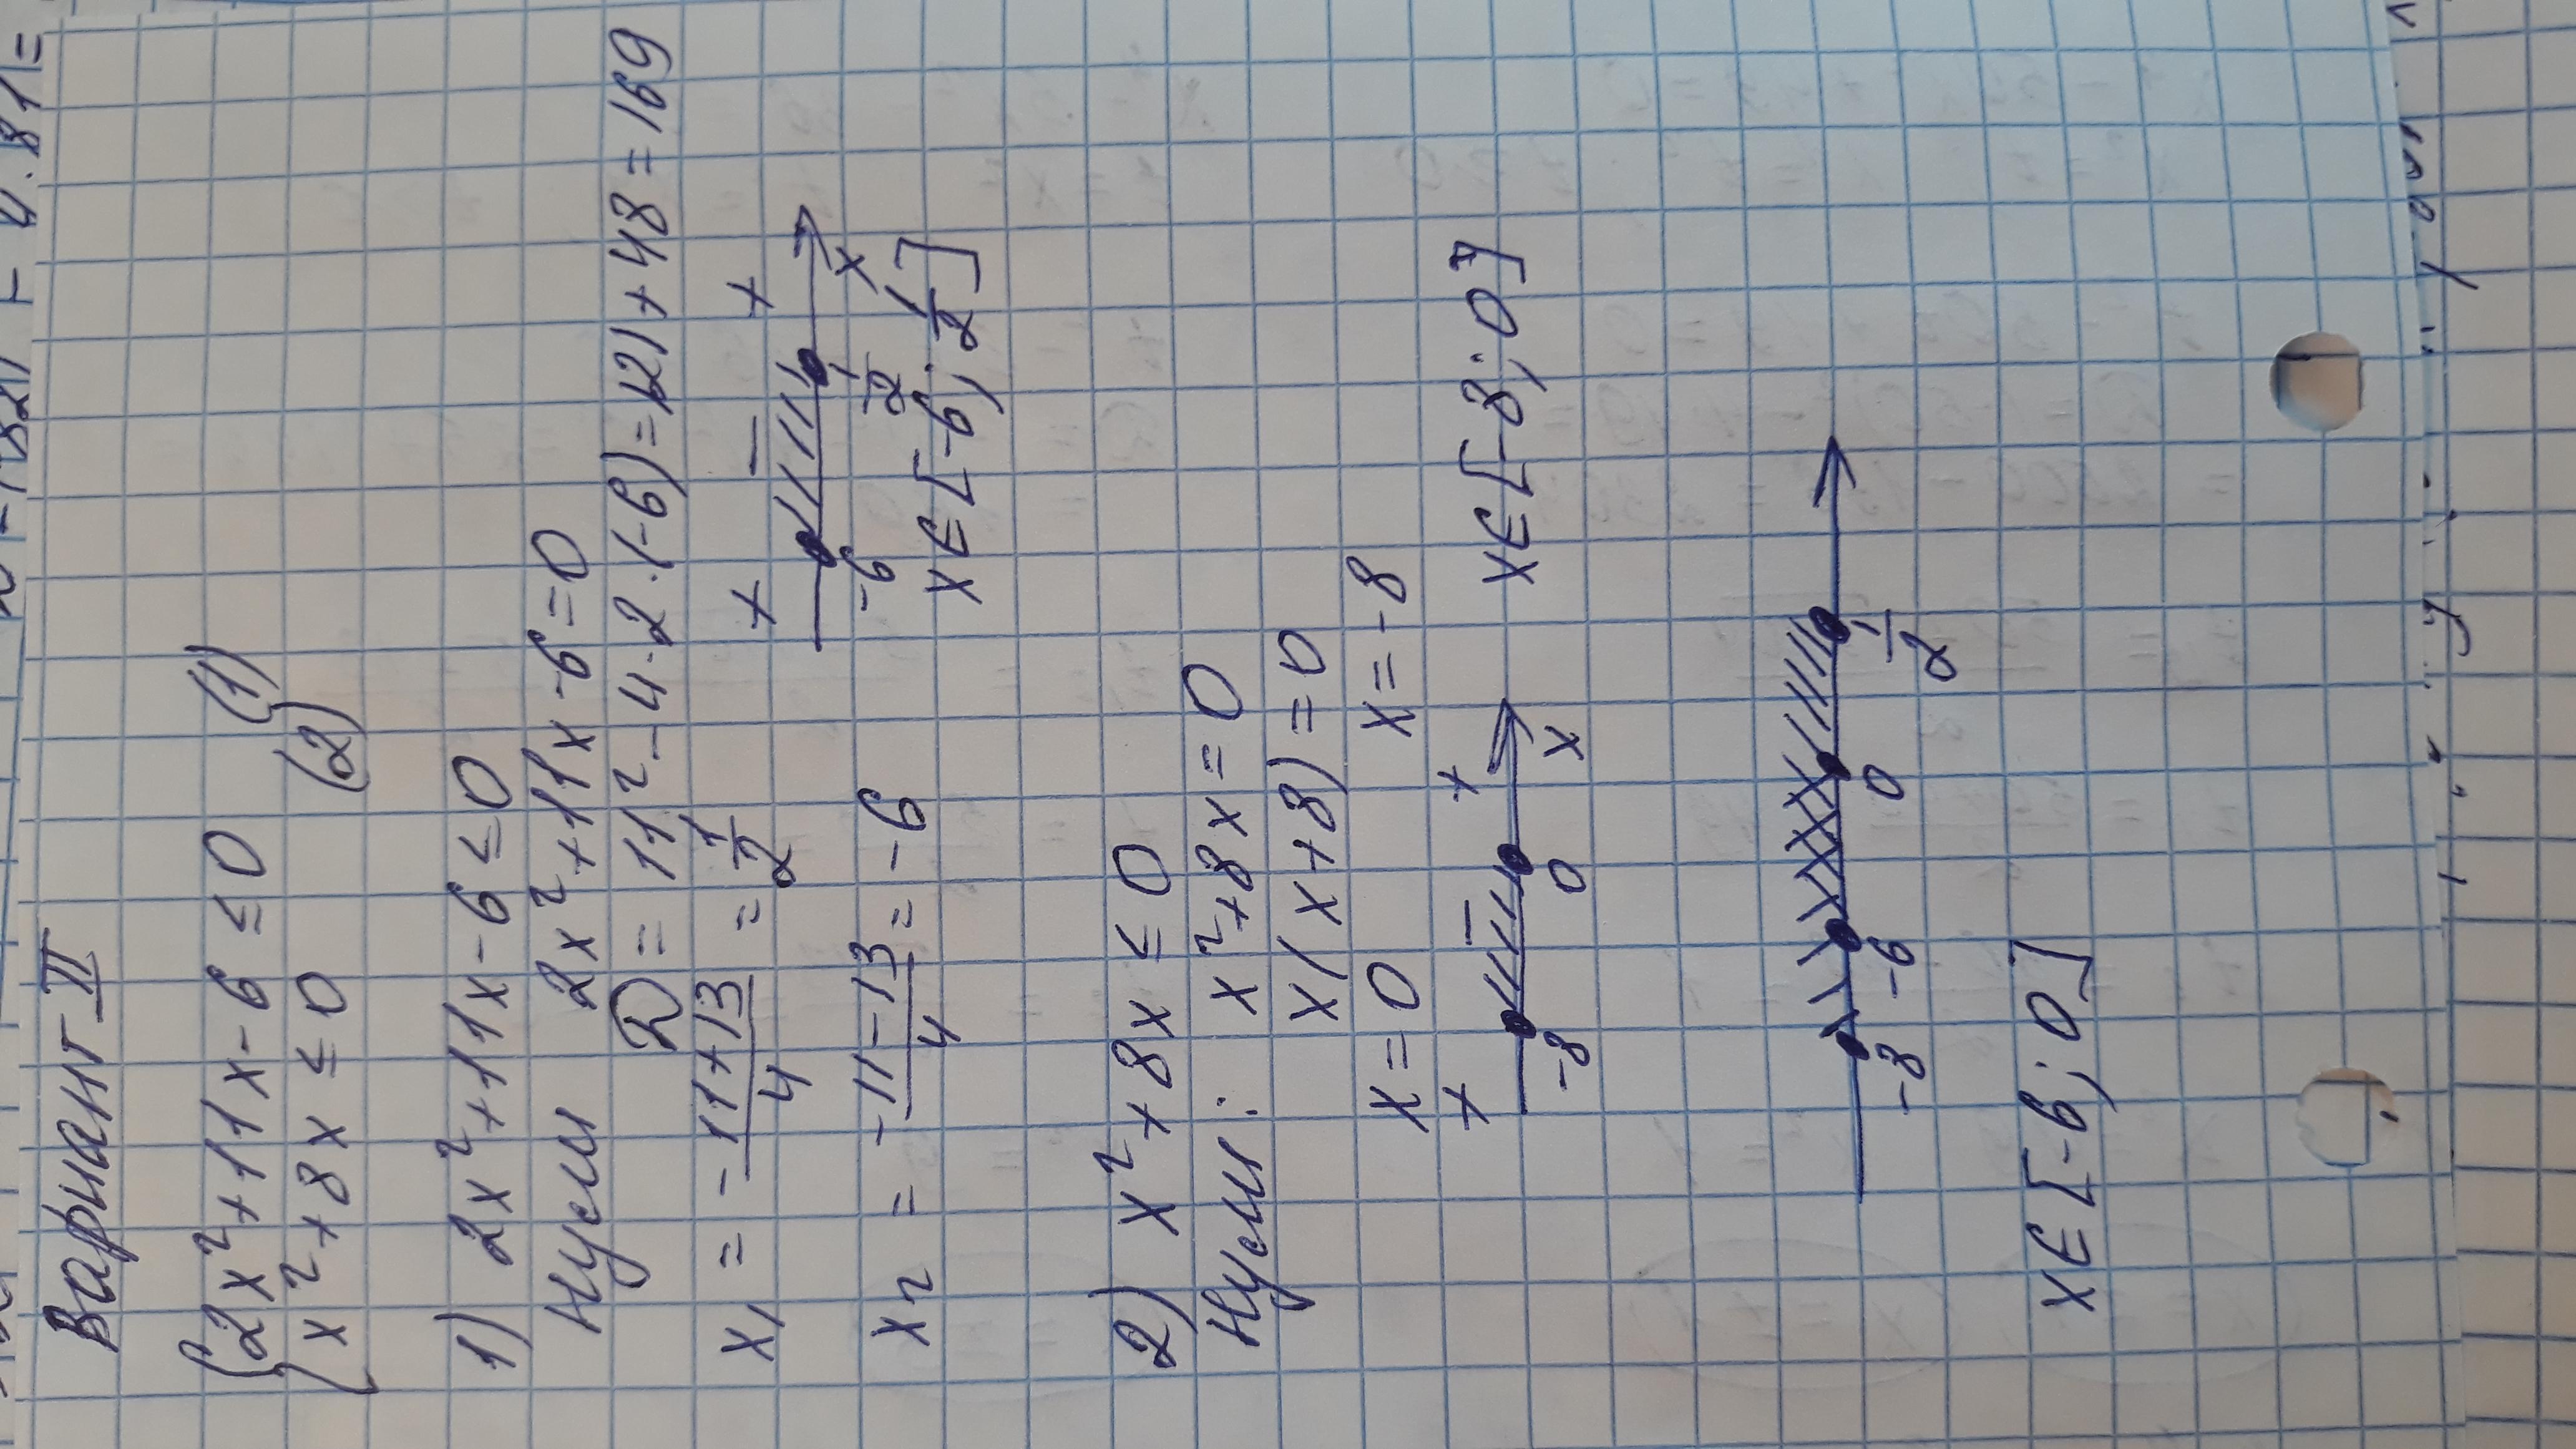 Вариант II
{2x²+11x-6≤0 (1)
x²+8x≤0 (2)
1) 2x²+11x-6≤0
Нули 2x²+11x-6=0
D=11²-4·2·(-6)=121+48=169
x₁=-11+13/4=1/2
+ - +
-6 1/2 x
x₂=-11-13/4=-6
x∈[-6;1/2]
2) x²+8x≤0
Нули: x²+8x=0
x(x+8)=0
x=0 x=-8
+ - +
-8 0 x
x∈[-8;0]
-8 -6 0 1/2
x∈[-6;0]